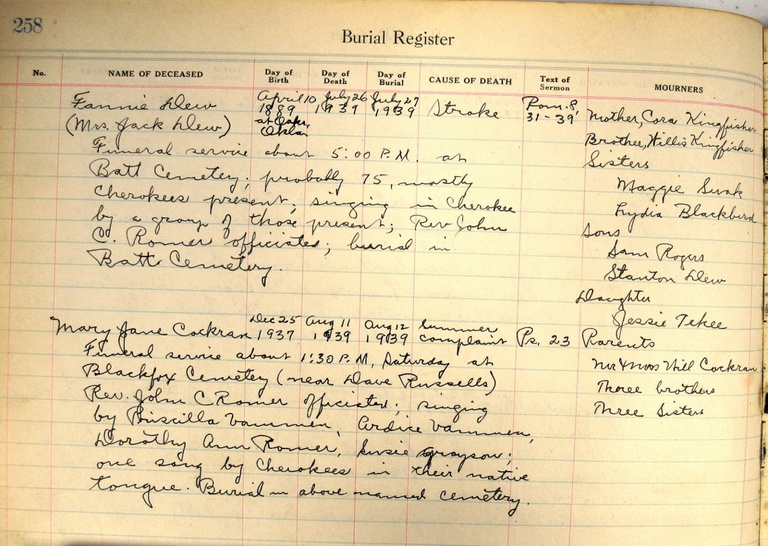 258
Burial Register
No. NAME OF DECEASED Day of Birth Day of Death Day of Burial CAUSE OF DEATH Text of Sermon MOURNERS
Fannie Dew April 10 1889 at Oaks, Okla. July 26 1939 July 27 1939 Stroke Rom. 8, 31-39 Mother, Cora Kingfisher
(Mrs. Jack Dew) Brother, Willis Kingfisher
Funeral service about 5:00 P.M. at Sisters
Batt Cemetery; probably 75, mostly Maggie Swak
Cherokees present; singing in Cherokee Lydia Blackbird
by a group of those present; Rev John Sons
C. Romer officiated; burial in Sam Rogers
Batt Cemetery. Stanton Dew
Daughter
Jessie Tehee
Mary Jane Cockran Dec 25 1937 Aug 11 1939 Aug 12 1939 Summer complaint Ps. 23 Parents
Funeral service about 1:30 P.M, Saturday at Mr & Mrs Will Cockran
Blackfox Cemetery (near Dave Russells) Three brothers
Rev. John C Romer officiated; singing Three Sisters
by Priscilla Vammen, Ardice Vammen,
Dorothy Ann Romer, Susie Grayson;
one song by Cherokees in their native
tongue. Burial in above named cemetery.